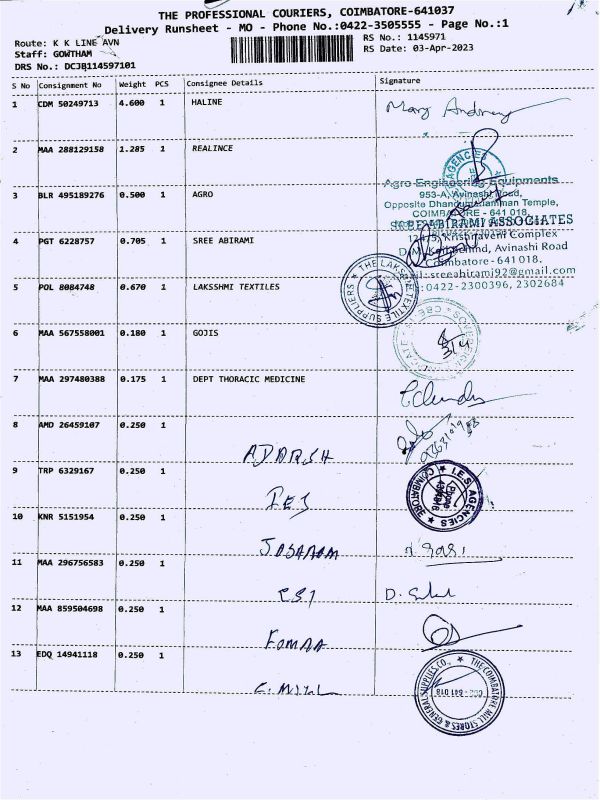 THE PROFESSIONAL COURIERS, COIMBATORE-641037
Delivery Runsheet - MO - Phone No.:0422-3505555 - Page No.:1
Route: K K LINE AVN
RS No.: 1145971
Staff: GOWTHAM
RS Date: 03-Apr-2023
DRS No.: DCJB114597101
S No Consignment No Weight PCS Consignee Details Signature
1 CDM 50249713 4.600 1 HALINE
2 MAA 288129158 1.285 1 REALINCE
AGENCIES
Agro Engineering Equipments
3 BLR 495189276 0.500 1 AGRO
953-A, Avinashi Road,
Opposite Dhandumariamman Temple,
COIMBATORE - 641 018.
SREE ABIRAMI ASSOCIATES
4 PGT 6228757 0.705 1 SREE ABIRAMI
Krishnaveni Complex
Avinashi Road
Coimbatore - 641 018.
sreeabirami92@gmail.com
5 POL 8084748 0.670 1 LAKSSHMI TEXTILES
:0422-2300396, 2302684
THE LAKSHMI TEXTILE SUPPLIERS
6 MAA 567558001 0.180 1 GOJIS
CBE
3/4
7 MAA 297480388 0.175 1 DEPT THORACIC MEDICINE
8 AMD 26459107 0.250 1
ADARSH
9 TRP 6329167 0.250 1
I.E.S. AGENCIES COIMBATORE
IES
10 KNR 5151954 0.250 1
11 MAA 296756583 0.250 1
CSI
12 MAA 859504698 0.250 1
13 EDQ 14941118 0.250 1
THE COIMBATORE MILL STORES & GENERAL SUPPLIES CO.,
641 018
C. Mill